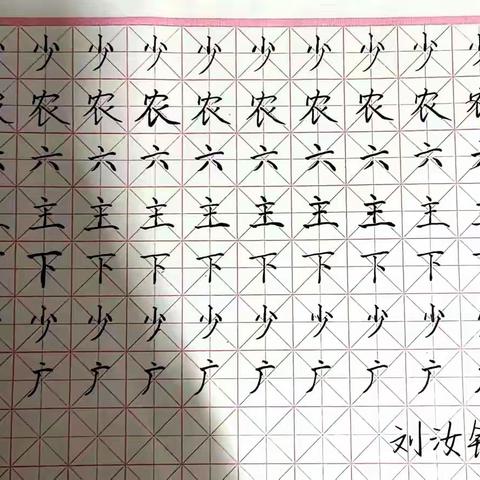 少少少少少少少少
农农农农农农农农
六六六六六六六六
主主主主主主主主
下下下下下下下下
少少少少少少少少
广广广广广广广广
刘汝